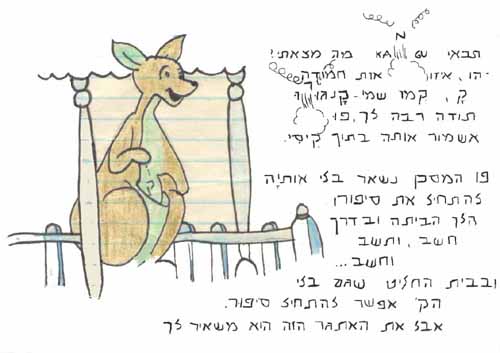 תבאי מה מצאתי!
-הו, איזו אות חמודה
קָ, קמו שמי-
תודה רבה לך, פו
אשמור אותה בתוך קיסי.
פו המסכן נשאר בלי אותיה
להתחיל את סיפורו
הלך הביתה ובדרך
חשב, וחשב
וחשב...
ובבית החליט שגם בלי
הק' אפשר להתחיל סיפור.
אבל את האתגר הזה היא משאיר לך